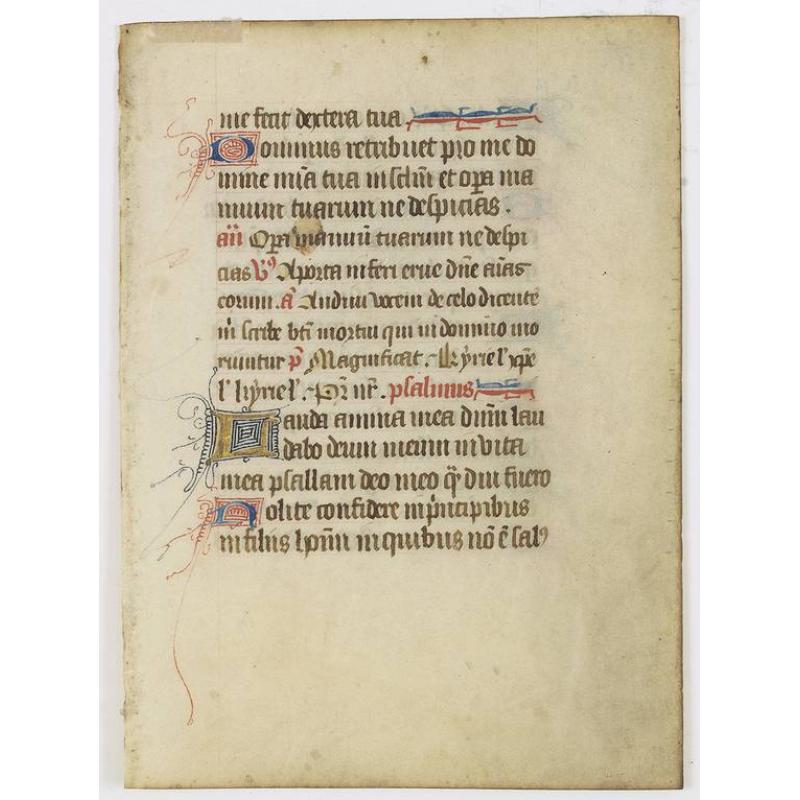 me fecit dextera tua
Dominus retribuet pro me do
mine mīa tua in sclm̄ et opa ma
nuum tuarum ne despicias .
añ Opa manuū tuarum ne despi
cias V9 A porta inferi erue dñe aīas
eorum . ā Audiui vocem de celo dicente
m̄ scribe bti mortui qui in domino mo
riuntur p̄ Magnificat . kyriel' xp̄e
l' kyriel' . Pr̄ nr̄ . psalmus
Lauda anima mea dnm̄ lau
dabo deum meum in vita
mea psallam deo meo q̄ diu fuero
Nolite confidere in principibus
in filiis hoīnū in quibus nō ē sal9